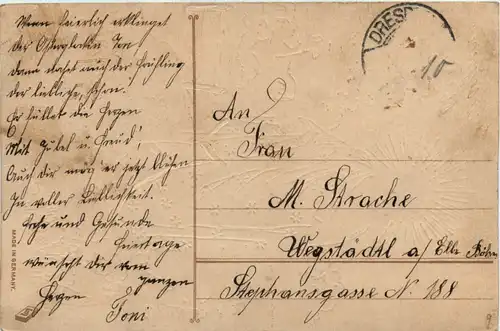 Wenn feierlich erklinget
der Osterglocken Ton
dann nahet auch der Frühling
der liebliche, schon.
Er füllet die Herzen
Mit Jubel u. Freud'
Auch dir mög' er jetzt blühen
In voller Lieblichkeit.
Frohe und Gesunde
Feiertage
wünscht Dir vom
ganzen
Herzen
Toni
MADE IN GERMANY.
DRESD
10
An
Frau
M. Strache
Wegstädtl a/ Elbe Böhm
Stephansgasse N. 188